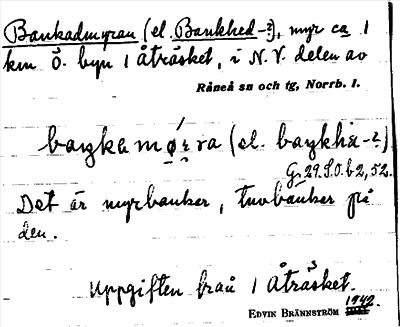 Bankadmyran (el. Bankhed-?), myr ca 1
km Ö. byn i Åträsket, i N.V. delen av
Råneå sn och tg, Norrb. l.
(el.
G. 29. S.O. b2, 52.
Det är myrbankar, tuvbankar på
den.
Uppgiften från i Åträsket.
EDVIN BRÄNNSTRÖM 1942.